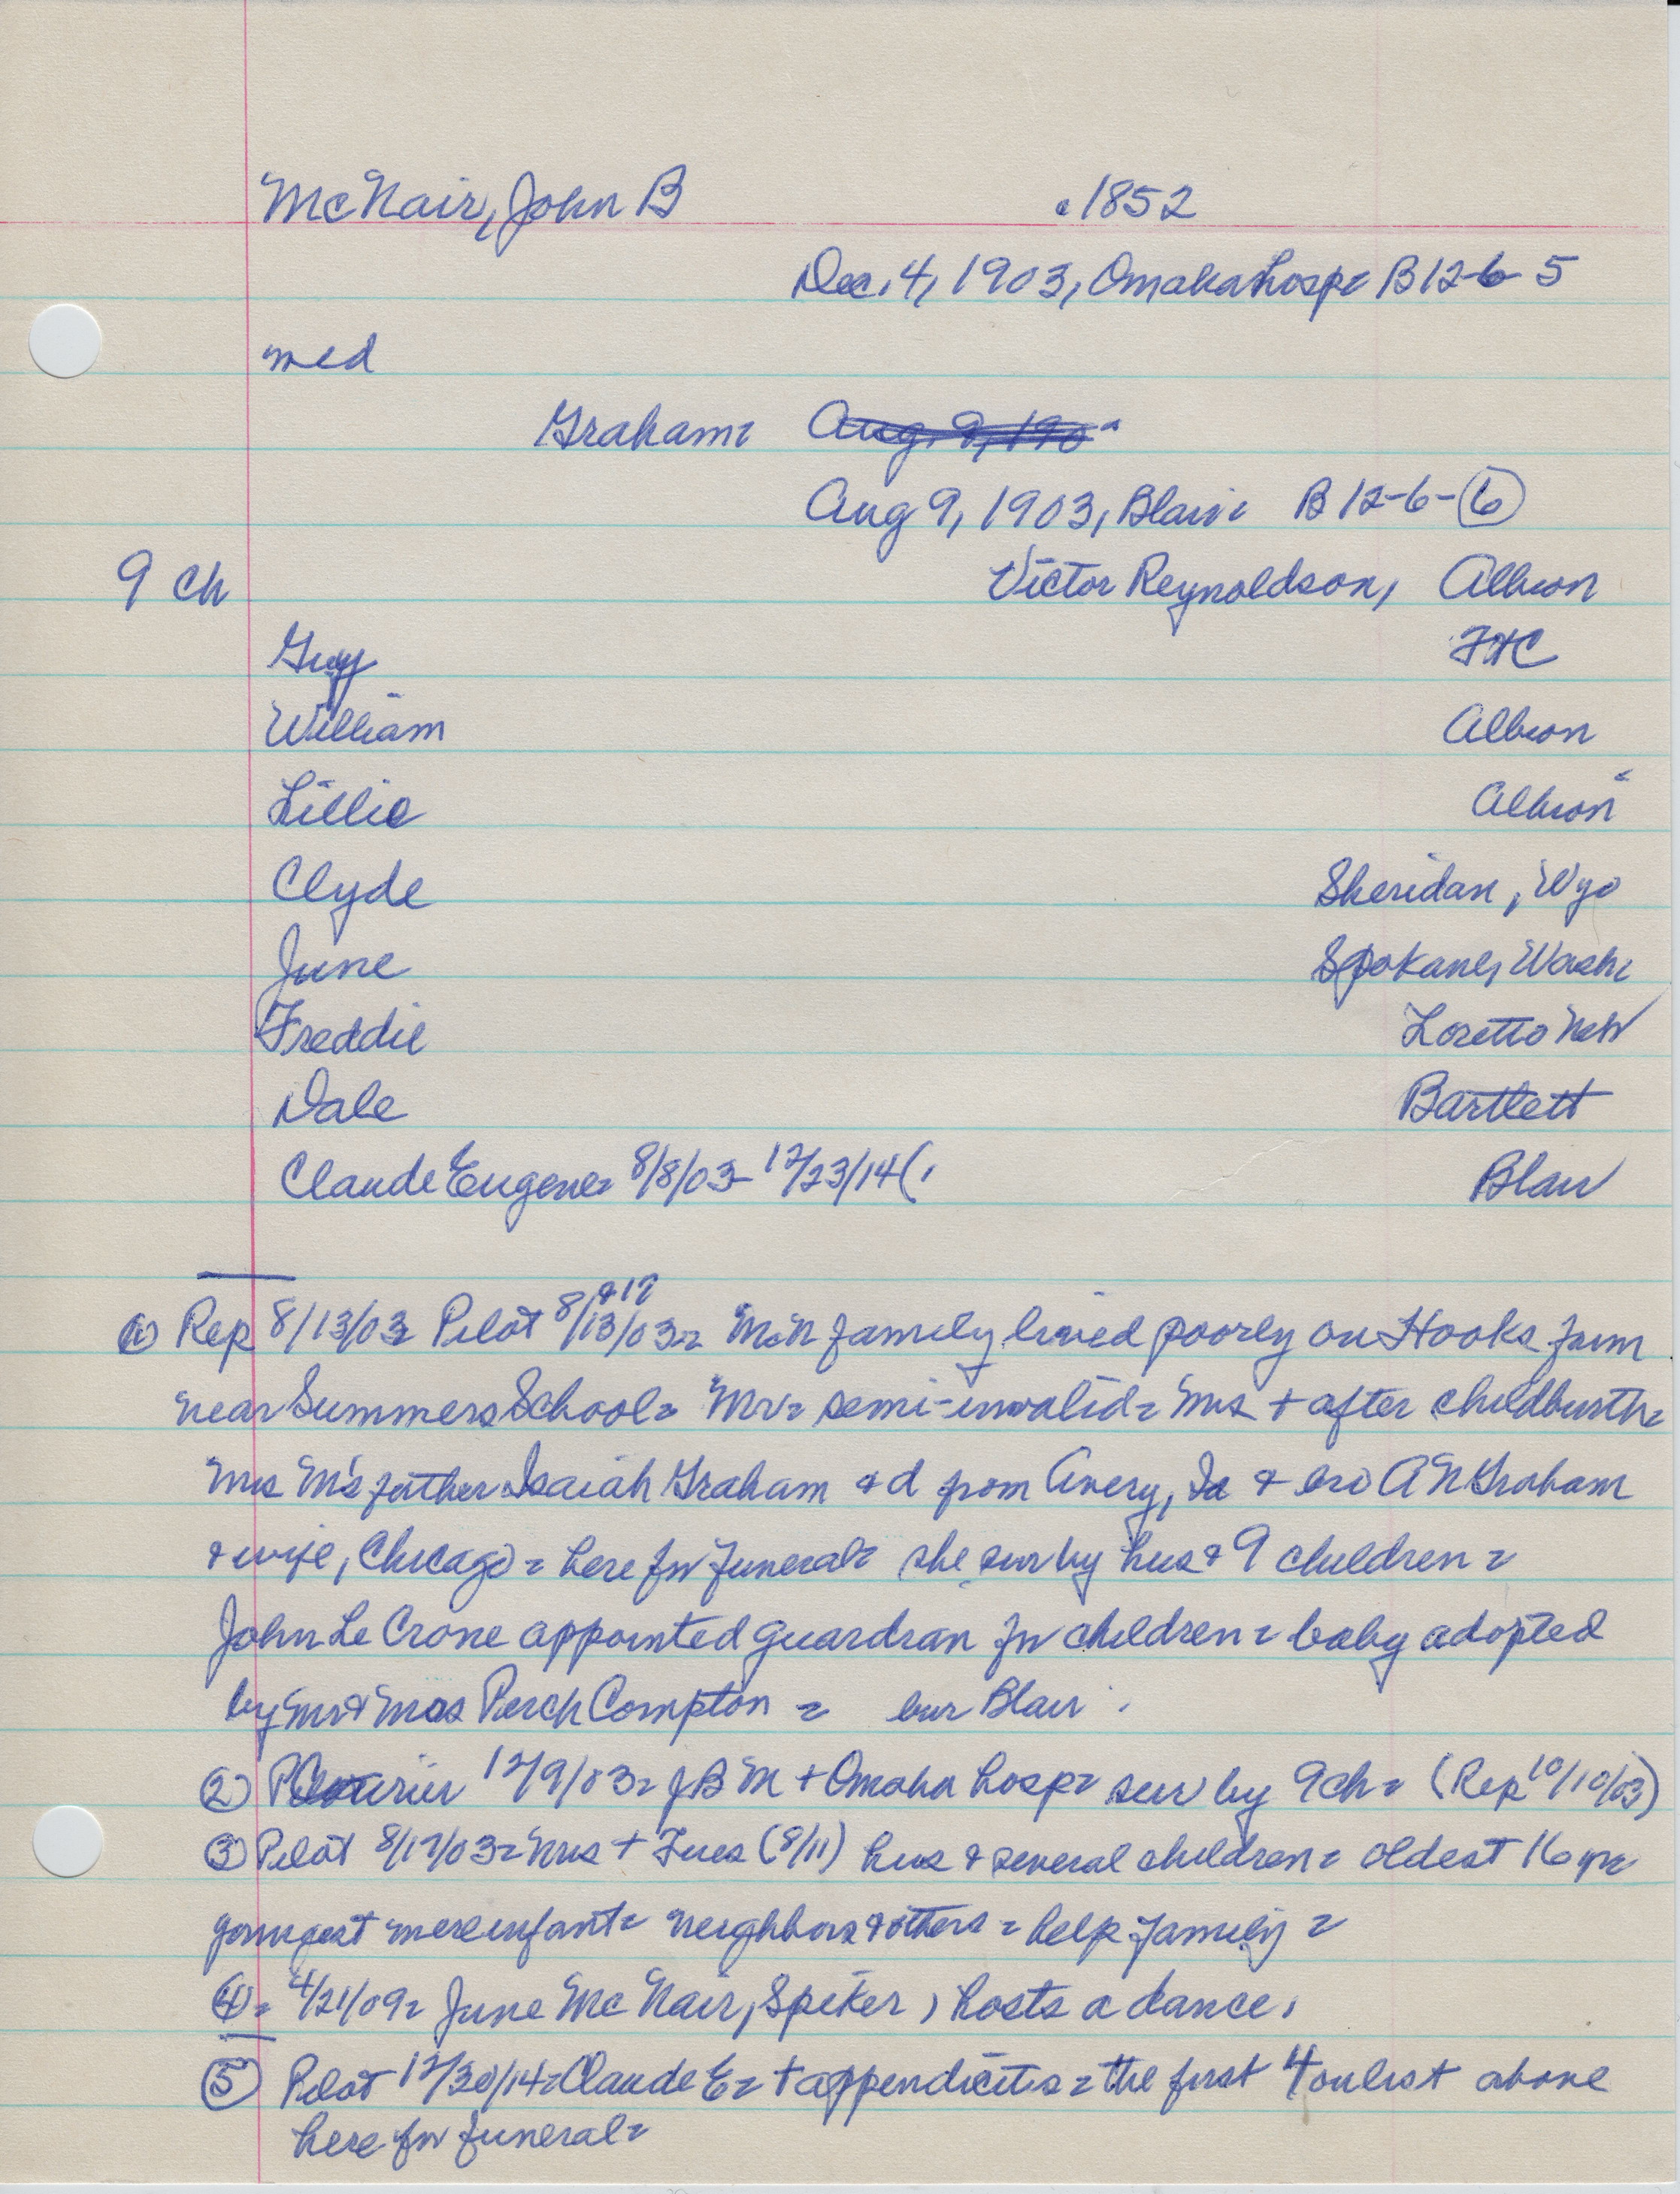 McNair, John B c1852
Dec. 4, 1903, Omaha hosp= B 12-6 5
med
Graham= Aug. 9, 190
Aug 9, 1903, Blair= B 12-6-6
9 ch Victor Reynoldson, Albion
Guy FtC
William Albion
Lillie Albion
Clyde Sheridan, Wyo
June Spokane, Wash=
Freddie Loretto Neb
Dale Bartlett
Claude Eugene= 8/8/03- 12/23/14(.
Blair
① Rep 8/13/03 Pilot 8/13/03= & 19 McN family lived poorly on Hooks farm
near Summers School= Mr= semi-invalid= Mrs + after childbirth=
Mrs M's father Isaiah Graham & d from Avery, Ia & bro A N Graham
& wife, Chicago= here for funeral= she sur by hus & 9 children=
John Le Crone appointed guardian for children= baby adopted
by Mr & Mrs Perch Compton = bur Blair.
② Courier 12/9/03= JBM + Omaha hosp= sur by 9 ch= (Rep 10/10/03)
③ Pilot 8/19/03= Mrs + Tues (8/11) hus & several children= oldest 16 yr=
youngest mere infant= neighbors & others= help family=
④= 4/21/09= June McNair, Spiker, hosts a dance.
⑤ Pilot 12/30/14= Claude E= + appendicitis= the first 4 on list above
here for funeral=